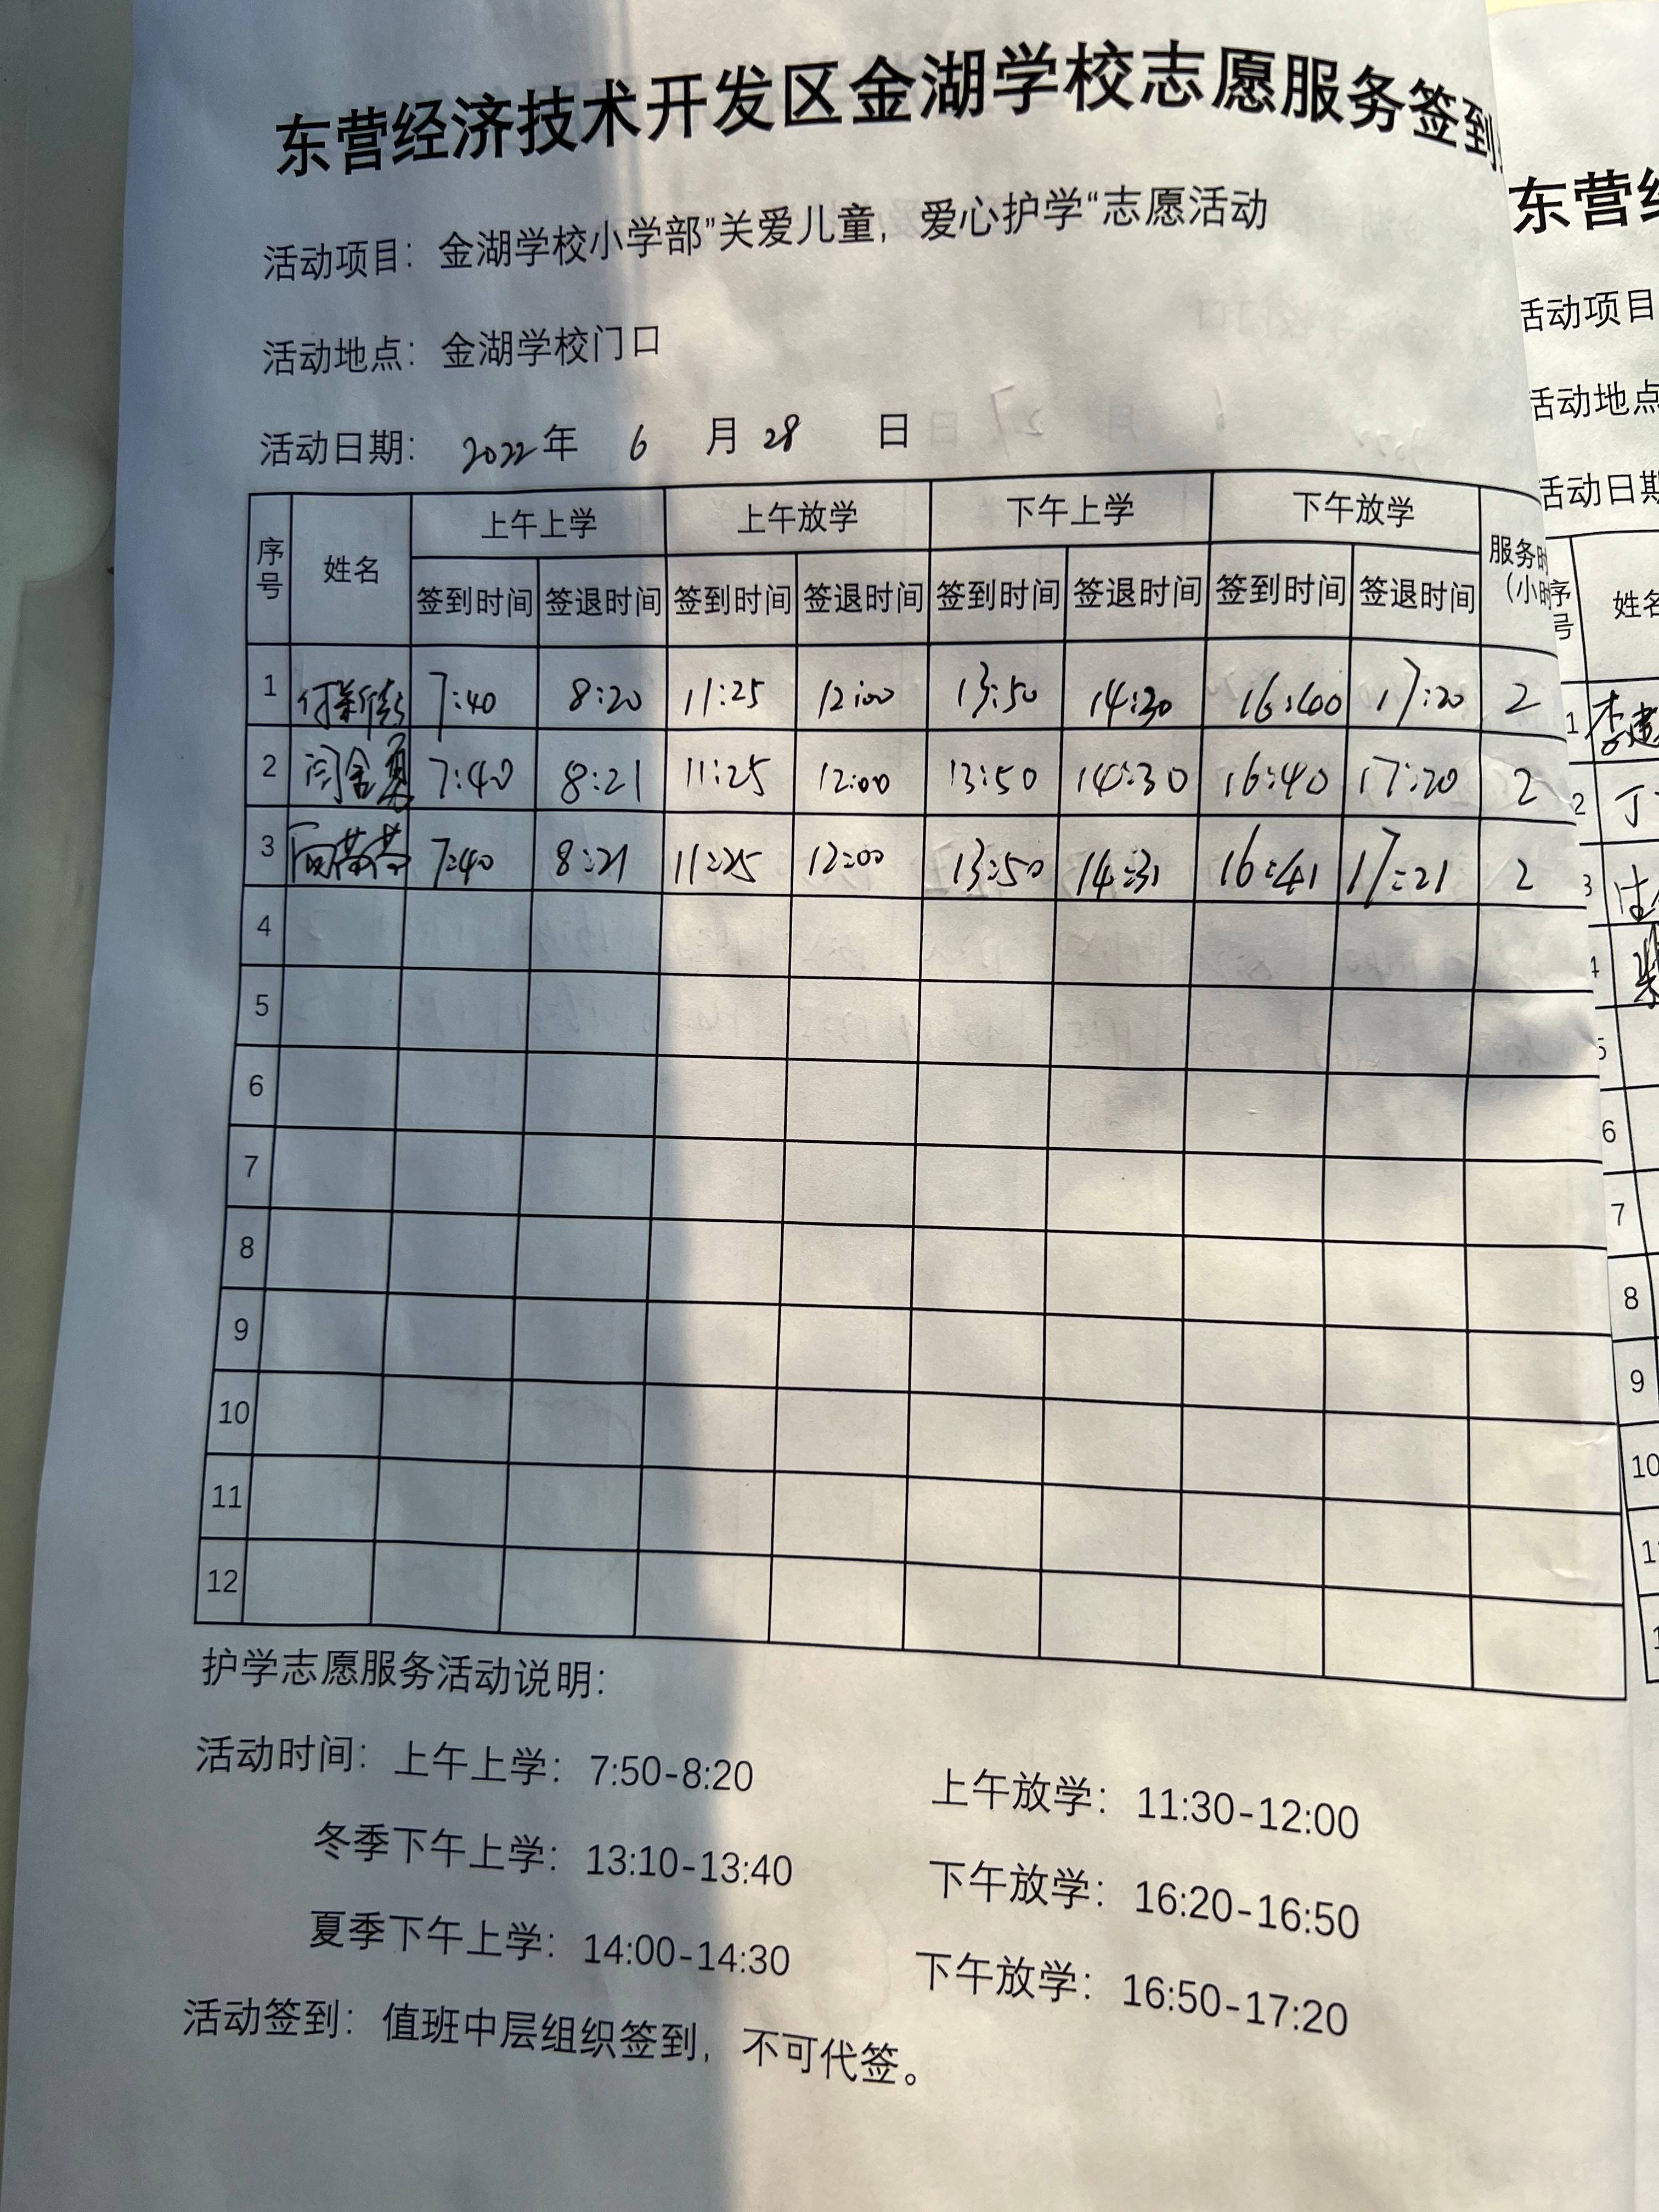 东营经济技术开发区金湖学校志愿服务签到
活动项目：金湖学校小学部”关爱儿童，爱心护学“志愿活动
活动地点：金湖学校门口
活动日期： 2022年 6 月 28 日
序号 姓名 上午上学 上午放学 下午上学 下午放学 服务时（小时
签到时间 签退时间 签到时间 签退时间 签到时间 签退时间 签到时间 签退时间
1 7:40 8:20 11:25 12:00 13:50 14:30 17:20 2
2 7:40 8:21 11:25 12:00 13:50 14:30 16:40 17:20 2
3 7:40 8:21 11:25 12:00 13:50 14:31 16:41 17:21 2
4
5
6
7
8
9
10
11
12
护学志愿服务活动说明：
活动时间：上午上学：7:50-8:20 上午放学：11:30-12:00
冬季下午上学：13:10-13:40 下午放学：16:20-16:50
夏季下午上学：14:00-14:30 下午放学：16:50-17:20
活动签到：值班中层组织签到，不可代签。
东营经
活动项目
活动地点
活动日期
序号 姓名
1 李建
2 丁
3
4
5
6
7
8
9
10